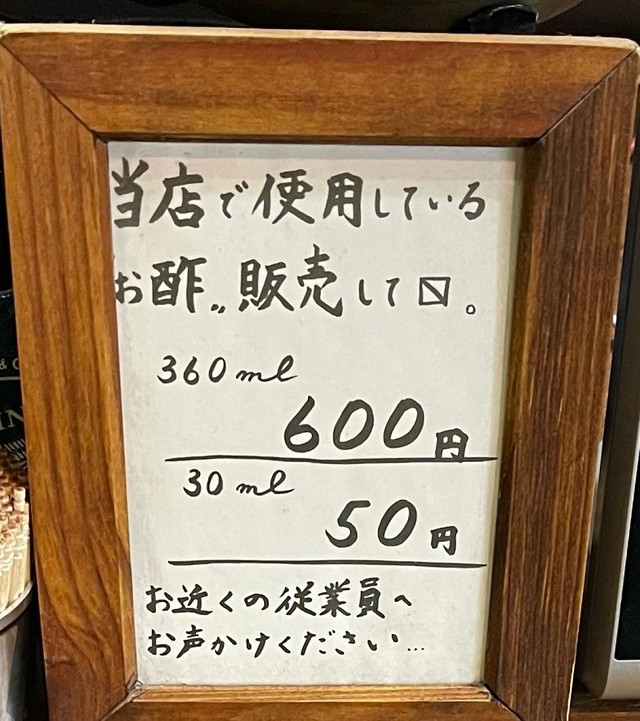 当店で使用している
お酢〟販売して〼。
360ml
600円
30ml
50円
お近くの従業員へ
お声かけください…